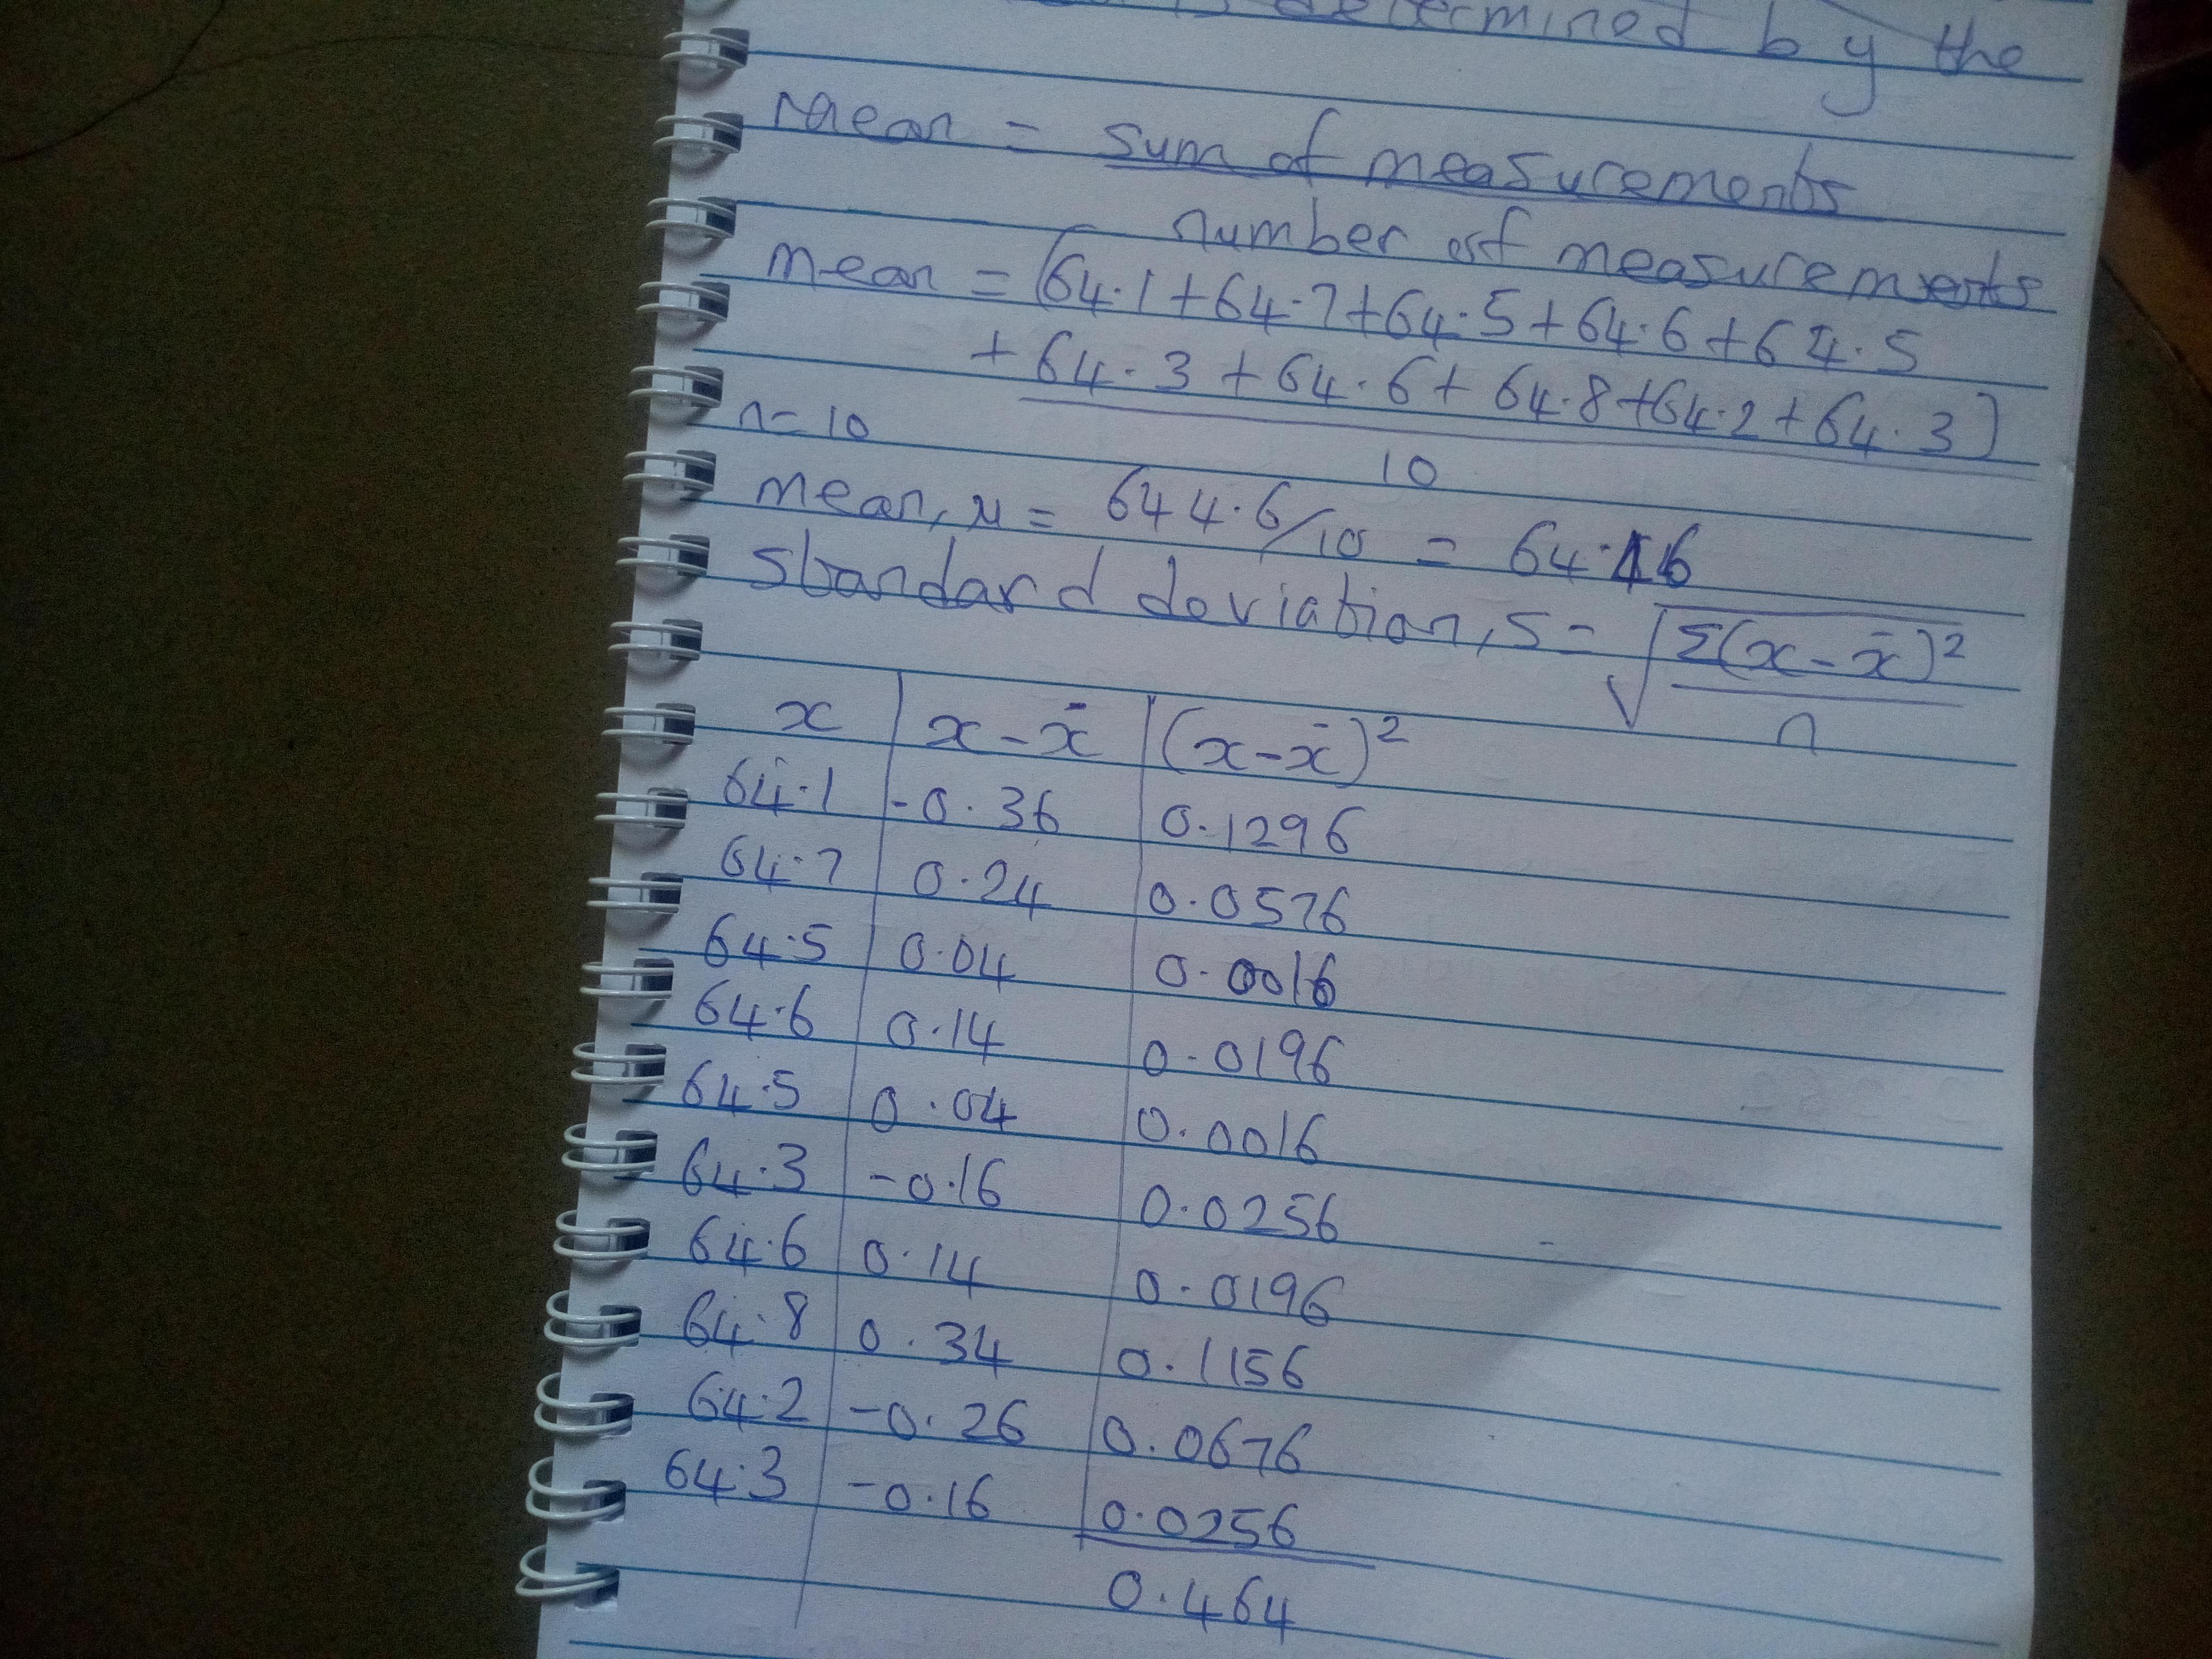 determined by the
mean = sum of measurements
number of measurements
mean = (64.1+64.7+64.5+64.6+64.5
+64.3+64.6+64.8+64.2+64.3)
n=10
10
mean, μ = 644.6/10 = 64.46
standard deviation, s = √Σ(x-x̄)²
n
x | x-x̄ | (x-x̄)²
64.1 | -0.36 | 0.1296
64.7 | 0.24 | 0.0576
64.5 | 0.04 | 0.0016
64.6 | 0.14 | 0.0196
64.5 | 0.04 | 0.0016
64.3 | -0.16 | 0.0256
64.6 | 0.14 | 0.0196
64.8 | 0.34 | 0.1156
64.2 | -0.26 | 0.0676
64.3 | -0.16 | 0.0256
0.464